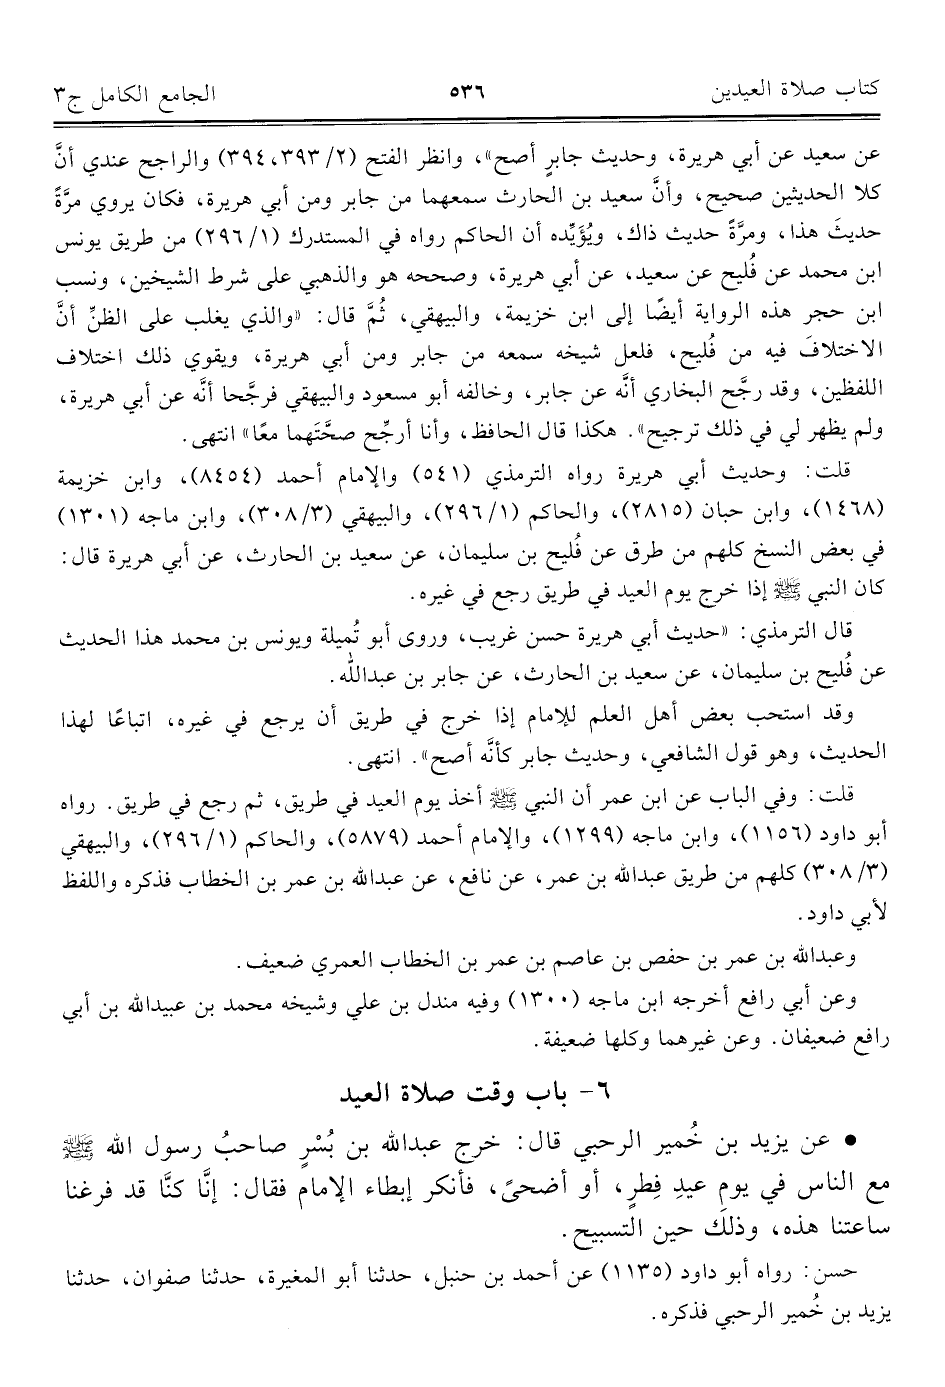 كتاب صلاة العيدين ٥٣٦ الجامع الكامل ج٣
عن سعيد عن أبي هريرة، وحديث جابرٍ أصح»، وانظر الفتح (٢/ ٣٩٣، ٣٩٤) والراجح عندي أنَّ
كلا الحديثين صحيح، وأنَّ سعيد بن الحارث سمعهما من جابر ومن أبي هريرة، فكان يروي مرَّةً
حديثَ هذا، ومرَّةً حديث ذاك، ويُؤَيِّده أن الحاكم رواه في المستدرك (١/ ٢٩٦) من طريق يونس
ابن محمد عن فُليح عن سعيد، عن أبي هريرة، وصححه هو والذهبي على شرط الشيخين، ونسب
ابن حجر هذه الرواية أيضًا إلى ابن خزيمة، والبيهقي، ثُمَّ قال: «والذي يغلب على الظنِّ أنَّ
الاختلافَ فيه من فُليح، فلعل شيخه سمعه من جابر ومن أبي هريرة، ويقوي ذلك اختلاف
اللفظين، وقد رجَّح البخاري أنَّه عن جابر، وخالفه أبو مسعود والبيهقي فرجَّحا أنَّه عن أبي هريرة،
ولم يظهر لي في ذلك ترجيح». هكذا قال الحافظ، وأنا أرجِّح صحَّتَهما معًا» انتهى.
قلت: وحديث أبي هريرة رواه الترمذي (٥٤١) والإمام أحمد (٨٤٥٤)، وابن خزيمة
(١٤٦٨)، وابن حبان (٢٨١٥)، والحاكم (١/ ٢٩٦)، والبيهقي (٣/ ٣٠٨)، وابن ماجه (١٣٠١)
في بعض النسخ كلهم من طرق عن فُليح بن سليمان، عن سعيد بن الحارث، عن أبي هريرة قال:
كان النبي ﷺ إذا خرج يوم العيد في طريق رجع في غيره.
قال الترمذي: «حديث أبي هريرة حسن غريب، وروى أبو تُميلة ويونس بن محمد هذا الحديث
عن فُليح بن سليمان، عن سعيد بن الحارث، عن جابر بن عبدالله.
وقد استحب بعض أهل العلم للإمام إذا خرج في طريق أن يرجع في غيره، اتباعًا لهذا
الحديث، وهو قول الشافعي، وحديث جابر كأنَّه أصح». انتهى.
قلت: وفي الباب عن ابن عمر أن النبي ﷺ أخذ يوم العيد في طريق، ثم رجع في طريق. رواه
أبو داود (١١٥٦)، وابن ماجه (١٢٩٩)، والإمام أحمد (٥٨٧٩)، والحاكم (١/ ٢٩٦)، والبيهقي
(٣/ ٣٠٨) كلهم من طريق عبدالله بن عمر، عن نافع، عن عبدالله بن عمر بن الخطاب فذكره واللفظ
لأبي داود.
وعبدالله بن عمر بن حفص بن عاصم بن عمر بن الخطاب العمري ضعيف.
وعن أبي رافع أخرجه ابن ماجه (١٣٠٠) وفيه مندل بن علي وشيخه محمد بن عبيدالله بن أبي
رافع ضعيفان. وعن غيرهما وكلها ضعيفة.
٦- باب وقت صلاة العيد
• عن يزيد بن خُمير الرحبي قال: خرج عبدالله بن بُسْرٍ صاحبُ رسول الله ﷺ
مع الناس في يوم عيدِ فِطرٍ، أو أضحىً، فأنكر إبطاء الإمام فقال: إنَّا كنَّا قد فرغنا
ساعتنا هذه، وذلكَ حين التسبيح.
حسن: رواه أبو داود (١١٣٥) عن أحمد بن حنبل، حدثنا أبو المغيرة، حدثنا صفوان، حدثنا
يزيد بن خُمير الرحبي فذكره.